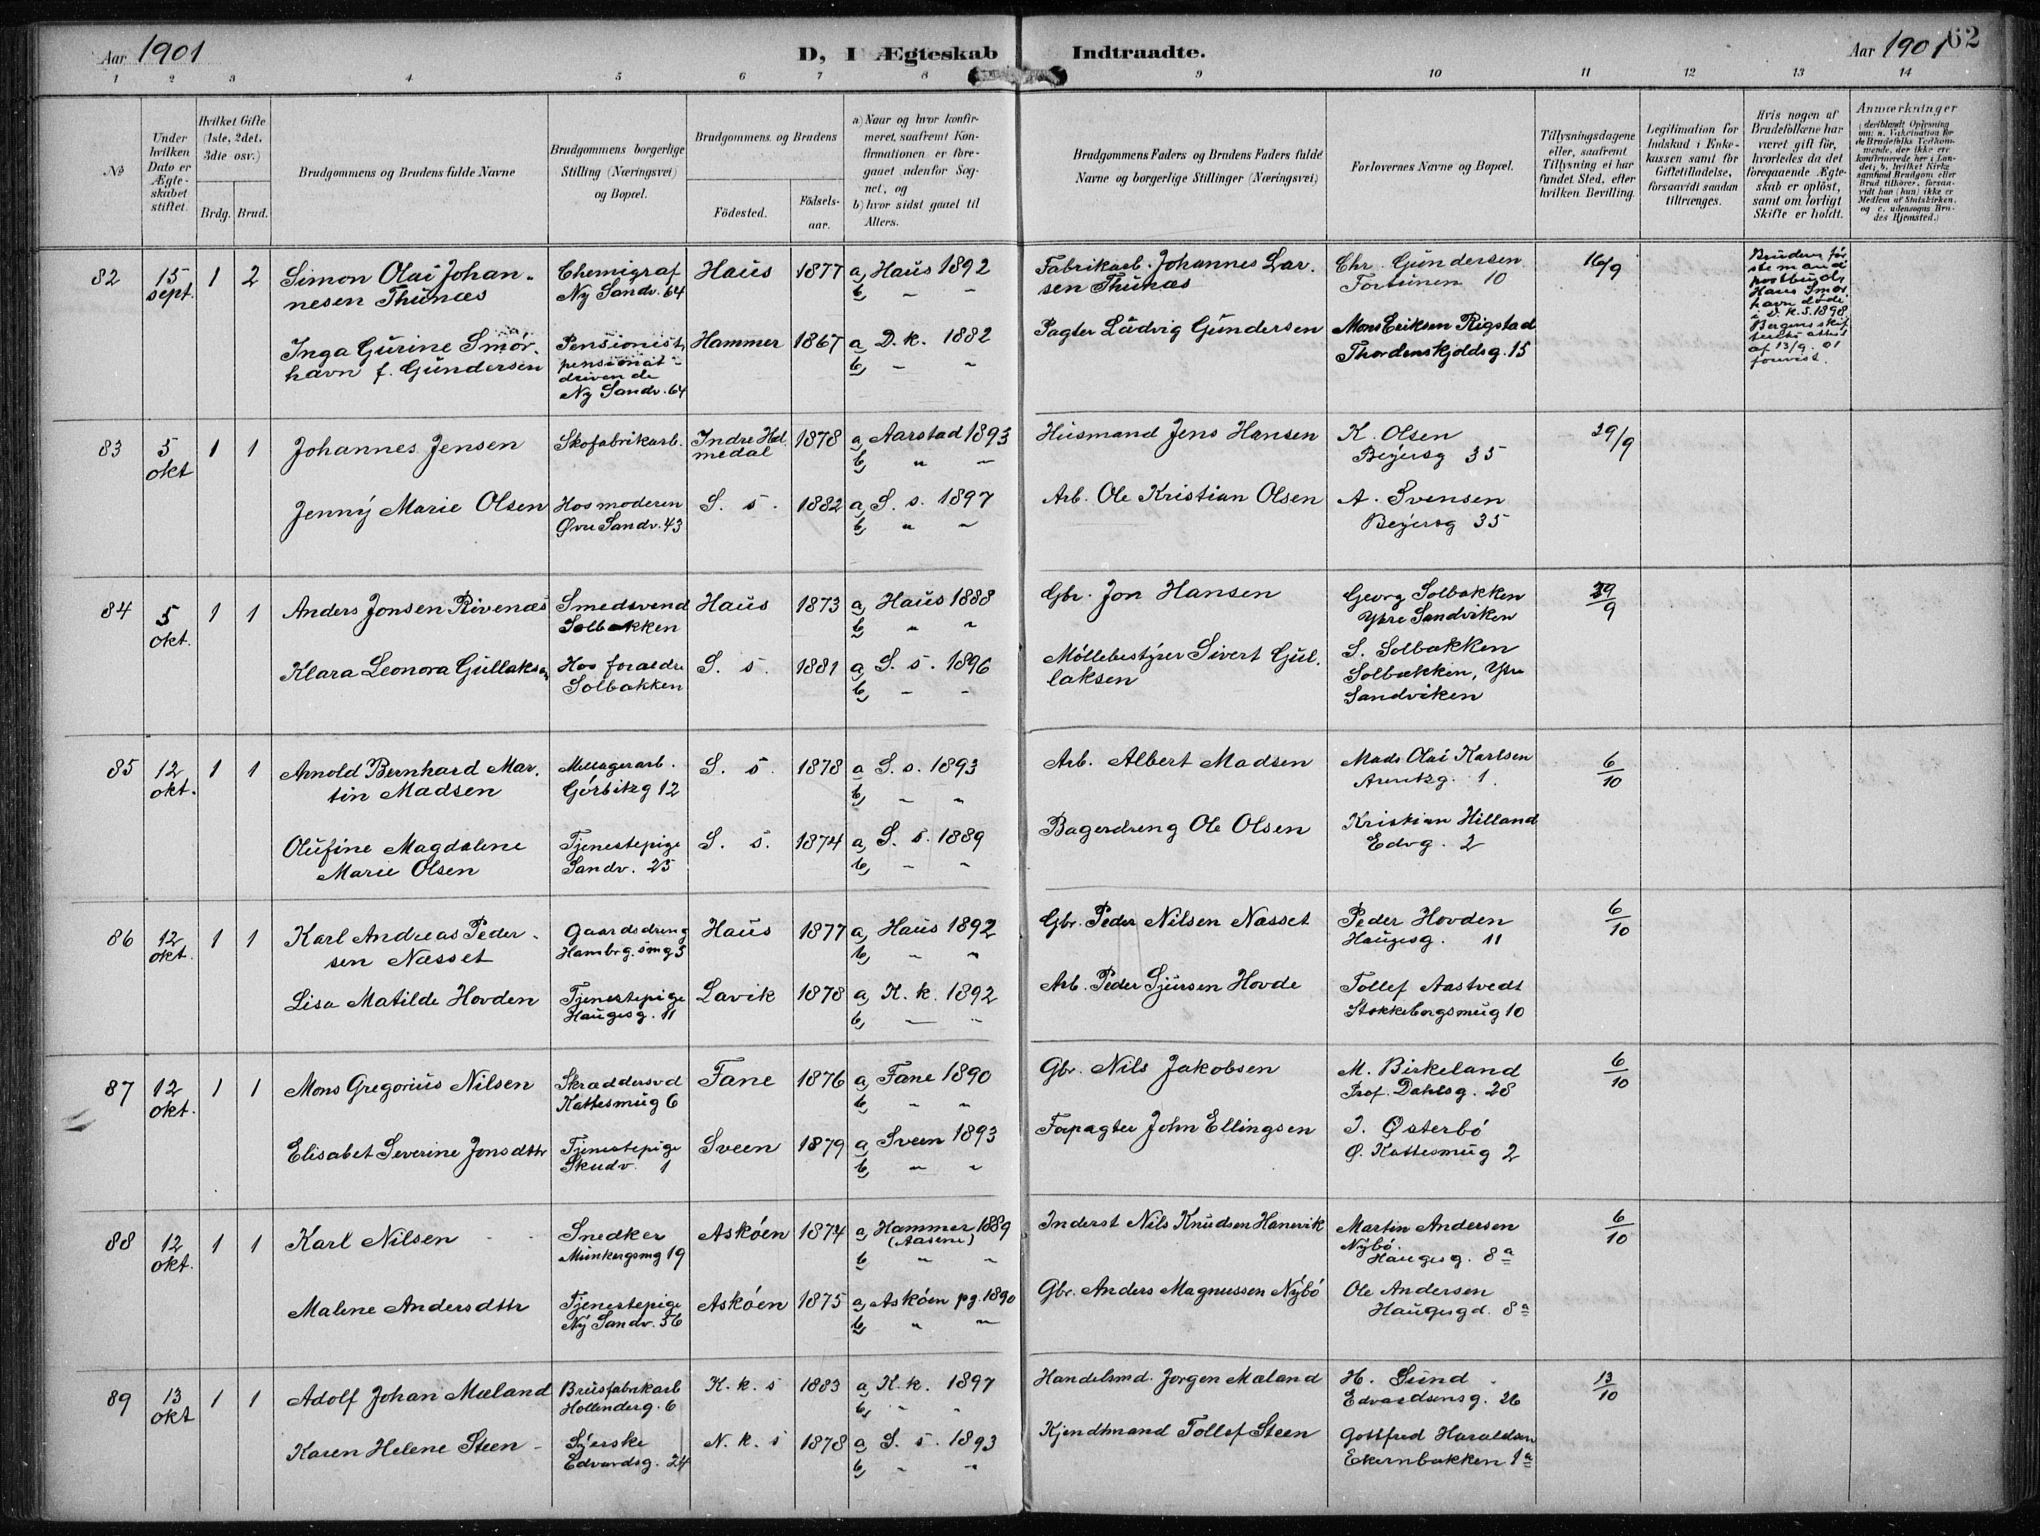 Aar 1901 D, I Ægteskab Indtraadte. Aar 1901 62
1 2 3 4 5 6 7 8 9 10 11 12 13 14
№
Under hvilken Dato er Ægteskabet stiftet.
Hvilket Gifte (1ste, 2det, 3die osv.)
Brdg. Brud.
Brudgommens og Brudens fulde Navne
Brudgommens borgerlige Stilling (Næringsvei) og Bopæl.
Brudgommens og Brudens
Födested. Födselsaar.
a) Naar og hvor konfirmeret, saafremt Konfirmationen er foregaaet udenfor Sognet, og
b) hvor sidst gaaet til Alters.
Brudgommens Faders og Brudens Faders fulde Navne og borgerlige Stillinger (Næringsvei)
Forlovernes Navne og Bopæl.
Tillysningsdagene eller, saafremt Tillysning ei har fundet Sted, efter hvilken Bevilling.
Legitimation for Indskud i Enkekassen samt for Giftetilladelse, forsaavidt saadan tiltrænges.
Hvis nogen af Brudefolkene har været gift før, hvorledes da det foregaaende Ægteskab er opløst, samt om lovligt Skifte er holdt.
Anmærkninger
82 15 sept. 1 2 Simon Olai Johan- Chemigraf Haus 1877 a, Haus 1892 Fabrikarb. Johannes Lar- Chr. Gundersen 16/9
nesen Thunæs Ny Sandv. 64 b, " " sen Thunæs Fortunen 10
Inga Gurine Smör- Pensionist, Hammer 1867 a D.k. 1882 Pagter Ludvig Gundersen Mons Eriksen Rigstad
havn f. Gundersen pensionat- b, " " Thordenskjoldsg. 15
drivende
Ny Sandv. 64
Bruden før-
ste mand
postbud
Hans Smør-
havn døde
i D.k. S. 1898
Bergens skif-
teretts attest
af 13/9. 01
forevist.
83 5 okt 1 1 Johannes Jensen Skofabrikarb. Indre Hol- 1878 a, Aarstad 1893 Husmand Jens Hansen K. Olsen 29/9
medal b, " " Beyersg 35
Jenny Marie Olsen Hos moderen S. s. 1882 a, S. s. 1897 Arb. Ole Kristian Olsen A. Svensen
Øvre Sandv. 43 b " " Beyersg 35
84 5 okt. 1 1 Anders Jonsen Rivenæs Smedsvend Haus 1873 a, Haus 1888 Gbr. Jon Hansen Georg Solbakken 29/9
Solbakken b " " Ytre Sandviken
Klara Leonora Gullaksen Hos foraldre S. s. 1881 a, S. s. 1896 Møllebestyrer Sivert Gul- S. Solbakken
Solbakken b, " " laksen Solbakken, Ytre
Sandviken
85 12 okt. 1 1 Arnold Bernhard Mar- S. s. 1878 a S. s. 1893 Arb. Albert Madsen Mads Olai Karlsen 6/10
tin Madsen Görbitzg 12 b, " " Arentzg. 1.
Olufine Magdalene Tjenestepige S. s. 1874 a, S. s. 1889 Bagerdreng Ole Olsen Kristian Hilland
Marie Olsen Sandv. 25 b, " " Edvg. 2
86 12 okt. 1 1 Karl Andreas Peder- Gaardsdreng Haus 1877 a, Haus 1892 Gbr. Peder Nilsen Nasset Peder Hovden 6/10
sen Næsset Hambrg. smg 5 b, " " Haugesg. 11
Lisa Matilde Hovden Tjenestepige Lavik 1878 a, K. k. 1892 Arb. Peder Sjursen Hovde Tollef Aastvedt
Haugesg. 11 b, " " Stokkeborgsmug 10
87 12 okt. 1 1 Mons Gregorius Nilsen Skræddersvd Fane 1876 a, Fane 1890 Gbr. Nils Jakobsen M. Birkeland 6/10
Kattesmug 6 b, " " Prof. Dahlsg. 28
Elisabet Severine Jonsdttr Tjenestepige Sveen 1879 a Sveen 1893 Forpagter John Ellingsen J. Østerbö
Skudv. 1 b, " " Ø. Kattesmug 2
88 12 okt. 1 1 Karl Nilsen Snedker Asköen 1874 a, Hammer 1889 Inderst Nils Knudsen Hanevik Martin Andersen 6/10
Munkergsmg 19 (Aasene) Nybö.
b " " Haugesg. 8a
Malene Andersdttr Tjenestepige Asköen 1875 a, Asköen pg. 1890 Gbr. Anders Magnussen Nybö Ole Andersen
Ny Sandv. 56 b, " " Haugesgd. 8a
89 13 okt 1 1 Adolf Johan Mæland Brusfabrikarb K. k. s 1883 a K. k. 1897 Handelsmd. Jorgen Mæland H. Sund 13/10
Hollenderg. 6 b, " " Edvardsensg. 26
Karen Helene Steen Syerske N. k. s 1878 a S. s. 1893 Kjendtmand Tollef Steen Gottfred Haraldsen
Edvardsg. 24 b, " " Ekernbakken 1a